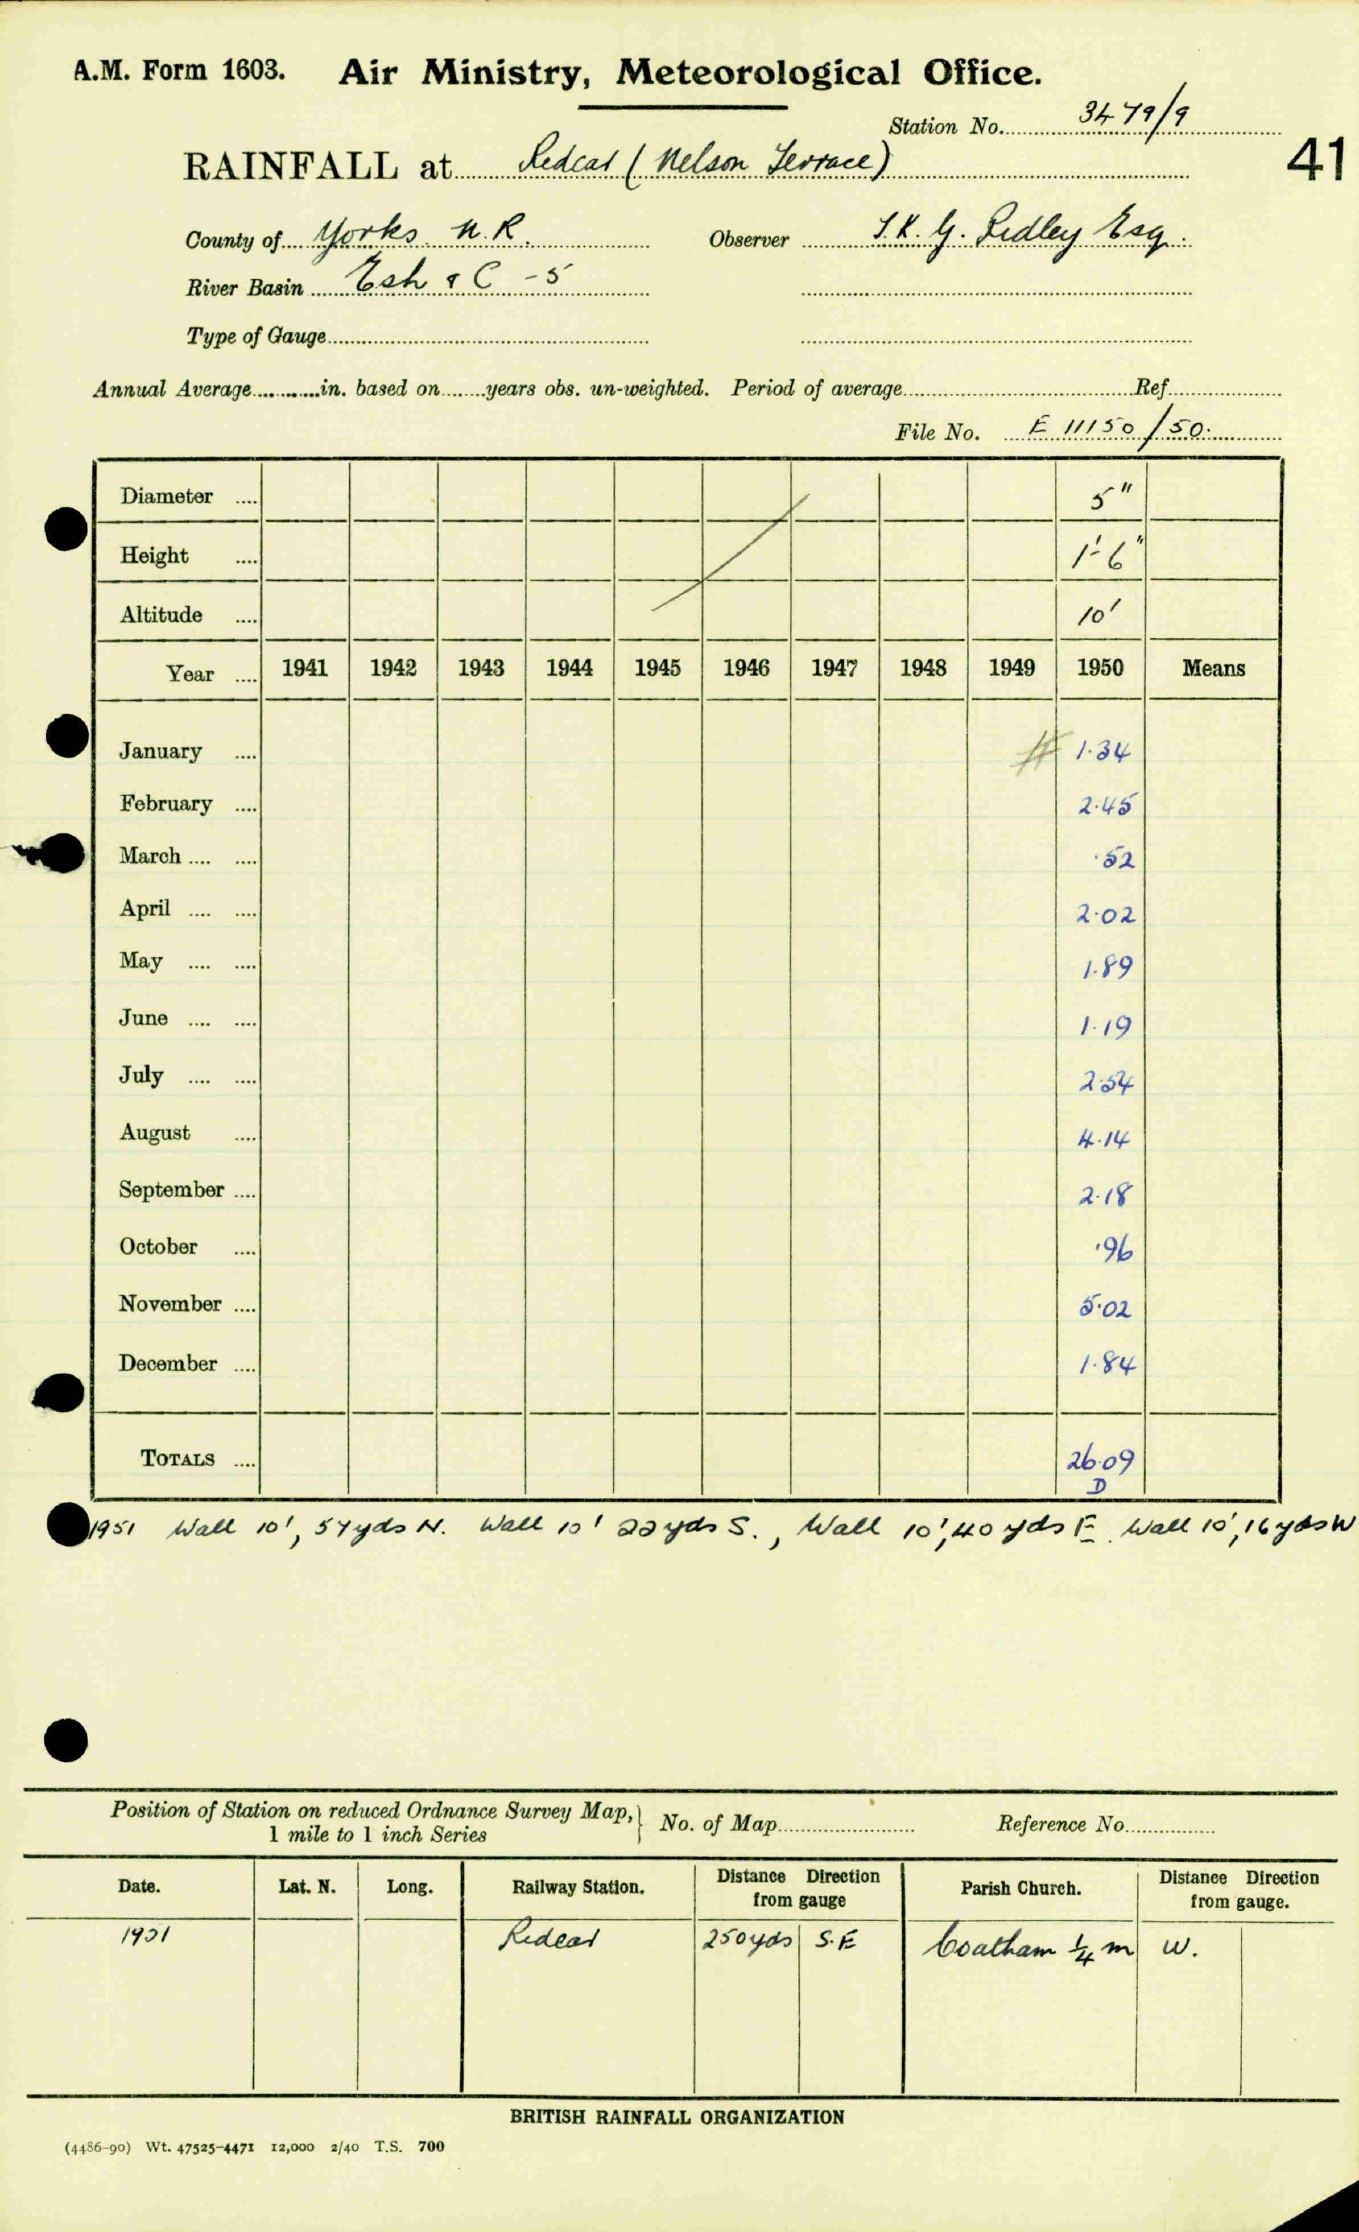 A.M. Form 1603. Air Ministry, Meteorological Office.
Station No. 3479/9
41
RAINFALL at Redcar (Nelson Terrace)
County of Yorks N.R. Observer J.K.G. Ridley Esq.
River Basin Esk & C - 5
Type of Gauge
Annual Average in. based on years obs. un-weighted. Period of average Ref.
File No. E 11150/50.
Diameter 5"
Height 1'-6"
Altitude 10'
Year 1941 1942 1943 1944 1945 1946 1947 1948 1949 1950 Means
January # 1.34
February 2.45
March .52
April 2.02
May 1.89
June 1.19
July 2.54
August 4.14
September 2.18
October .96
November 5.02
December 1.84
TOTALS 26.09
D
1951 Wall 10', 54yds N. Wall 10' 22yds S., Wall 10', 40 yds E. Wall 10', 16yds W
Position of Station on reduced Ordnance Survey Map, } No. of Map Reference No.
1 mile to 1 inch Series
Date. Lat. N. Long. Railway Station. Distance Direction from gauge Parish Church. Distance Direction from gauge.
1951 Redcar 250yds S.E Coatham 1/4 m W.
BRITISH RAINFALL ORGANIZATION
(4486-90) Wt. 47525-4471 12,000 2/40 T.S. 700